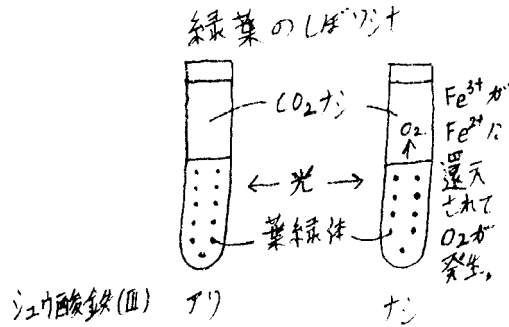 緑葉のしぼり汁
CO2ナシ
O2
↑
Fe³⁺が
Fe²⁺に
還元
されて
O2が
発生。
← 光 →
葉緑体
シュウ酸鉄(Ⅲ) アリ ナシ